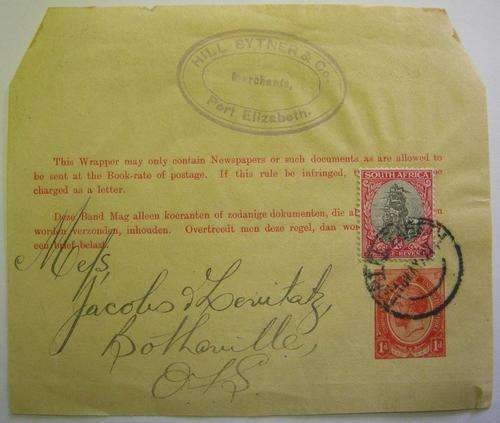 HILL SYTNER & Co.
Merchants,
Port Elizabeth.
This Wrapper may only contain Newspapers or such documents as are allowed to
be sent at the Book-rate of postage. If this rule be infringed, be
charged as a letter.
Deze Band Mag alleen koeranten of zodanige dokumenten, die al en
worden verzonden, inhouden. Overtreedt men deze regel, dan wor
een brief belast.
SOUTH AFRICA
1d
1d
Messrs
Jacobs & Levitatz,
Bothaville,
O.F.S.